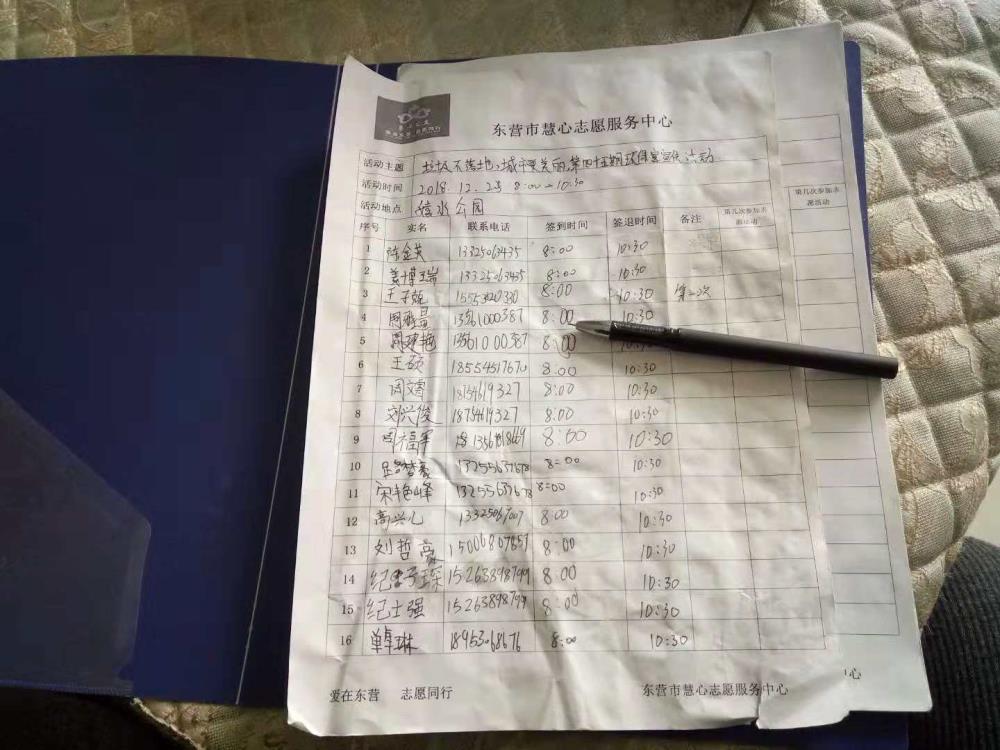 东营市慧心志愿服务中心
活动主题 垃圾不落地,城市更美丽,第四十五期环保宣传活动
活动时间 2018.12.23 8:00-10:30
活动地点 公园
序号 实名 联系电话 签到时间 签退时间 备注 第几次参加志愿活动
第几次参加志愿活动
1 陈金英 13325063435 8:00 10:30
2 姜博瑞 13325063435 8:00 10:30
3 8:00 10:30 第二次
4 8:00 10:30
5 8:00
6 王硕 8:00 10:30
7 周文睿 18754619327 8:00 10:30
8 刘兴俊 18754619327 8:00 10:30
9 周福军 8:00 10:30
10 13255637678 8:00 10:30
11 宋艳峰 13255637678 8:00 10:30
12 高兴儿 8:00 10:30
13 刘哲豪 8:00 10:30
14 15263898799 8:00 10:30
15 纪士强 15263898799 8:00 10:30
16 单琳 18953068676 8:00 10:30
爱在东营 志愿同行 东营市慧心志愿服务中心